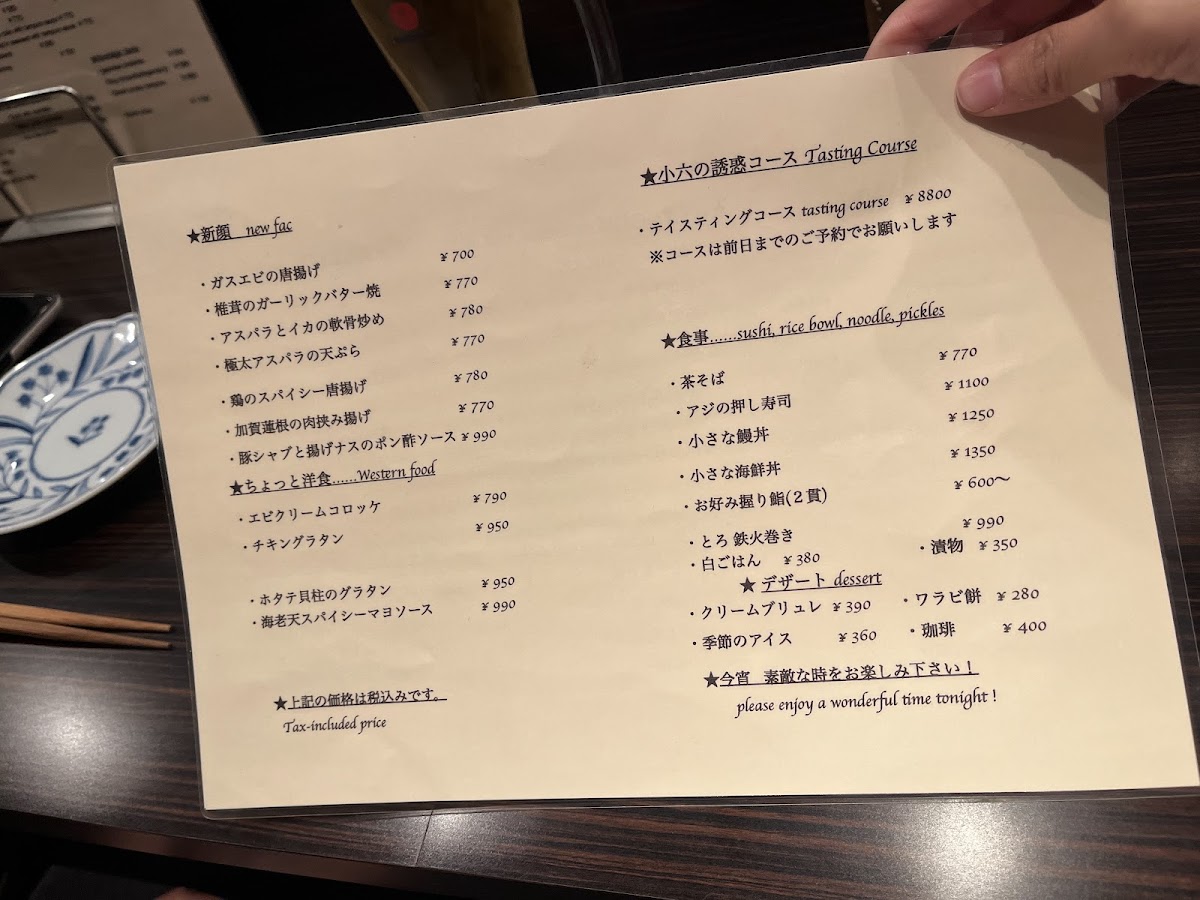 ★新顔 new fac
・ガスエビの唐揚げ ¥700
・椎茸のガーリックバター焼 ¥770
・アスパラとイカの軟骨炒め ¥780
・極太アスパラの天ぷら ¥770
・鶏のスパイシー唐揚げ ¥780
・加賀蓮根の肉挟み揚げ ¥770
・豚シャブと揚げナスのポン酢ソース ¥990
★ちょっと洋食……Western food
・エビクリームコロッケ ¥790
・チキングラタン ¥950
・ホタテ貝柱のグラタン ¥950
・海老天スパイシーマヨソース ¥990
★上記の価格は税込みです。
Tax-included price
★小六の誘惑コース Tasting Course
・テイスティングコース tasting course ¥8800
※コースは前日までのご予約でお願いします
★食事……sushi, rice bowl, noodle, pickles
・茶そば ¥770
・アジの押し寿司 ¥1100
・小さな鰻丼 ¥1250
・小さな海鮮丼 ¥1350
・お好み握り鮨(2貫) ¥600〜
・とろ 鉄火巻き ¥990
・白ごはん ¥380 ・漬物 ¥350
★ デザート dessert
・クリームブリュレ ¥390 ・ワラビ餅 ¥280
・季節のアイス ¥360 ・珈琲 ¥400
★今宵 素敵な時をお楽しみ下さい！
please enjoy a wonderful time tonight !